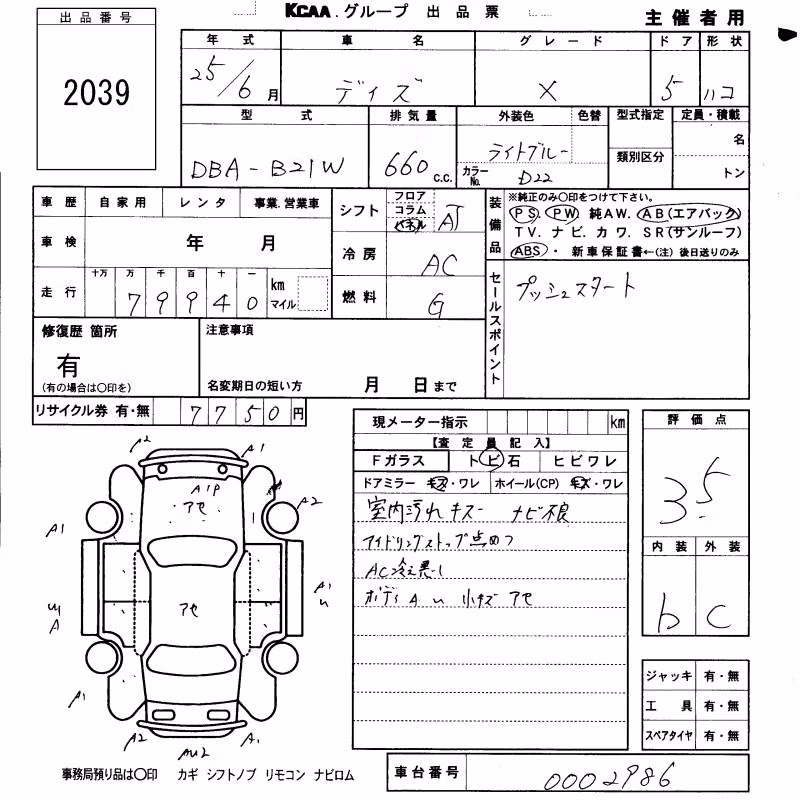 KCAA.グループ 出品票
主催者用
出品番号
2039
年式 車名 グレード ドア 形状
25/6月 デイズ X 5 ハコ
型式 排気量 外装色 色替 型式指定 定員・積載
DBA-B21W 660 c.c. ライトブルー 名
類別区分
カラーNo. D22 トン
車歴 自家用 レンタ 事業.営業車
シフト フロア コラム パネル AT
装備品
※純正のみ〇印をつけて下さい。
PS. PW 純AW. AB(エアバック)
TV. ナビ. カワ. SR(サンルーフ)
ABS・ 新車保証書←(注)後日送りのみ
車検 年 月
冷房 AC
走行 十万 万 千 百 十 一
79940 km マイル
燃料 G
セールスポイント
プッシュスタート
修復歴 箇所
有
(有の場合は〇印を)
注意事項
名変期日の短い方 月 日まで
リサイクル券 有・無 7750円
現メーター指示 km
【査定員記入】
Fガラス トビ石 ヒビワレ
ドアミラー キズ・ワレ ホイール(CP) キズ・ワレ
室内汚れキズー ナビ不良
アイドリングストップ点めつ
AC冷え悪し
ボディ A u 小キズ アセ
評価点
3.5
内装 外装
b C
A2 A1
A1P
アセ
A2
A1
A1
u
アセ
A
A1
A2 AU2 A1
ジャッキ 有・無
工具 有・無
スペアタイヤ 有・無
事務局預り品は〇印 カギ シフトノブ リモコン ナビロム
車台番号 0002986